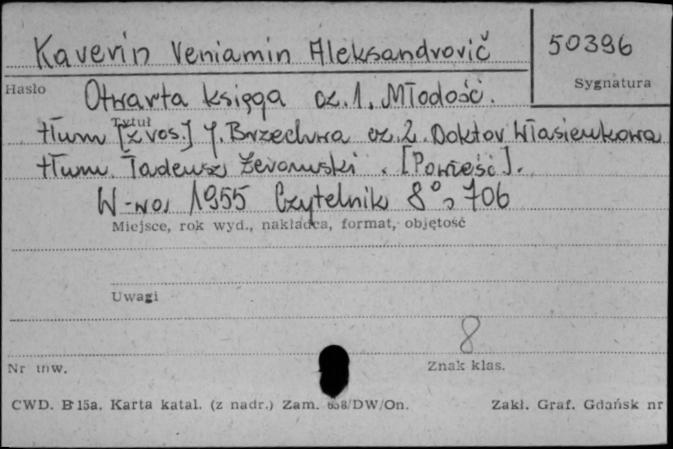 Kaverin Veniamin Aleksandrovič
50396
Hasło
Sygnatura
Otwarta księga cz. 1. Młodość.
Tytuł
tłum [z ros.] J. Brzechwa cz. 2. Doktor Własienkowa
tłum. Tadeusz Żeromski. [Powieść].
W-wa 1955 Czytelnik 8° s 706
Miejsce, rok wyd., nakładca, format, objętość
Uwagi
8
Nr inw.
Znak klas.
CWD. B 15a. Karta katal. (z nadr.) Zam. 658/DW/On.
Zakł. Graf. Gdańsk nr